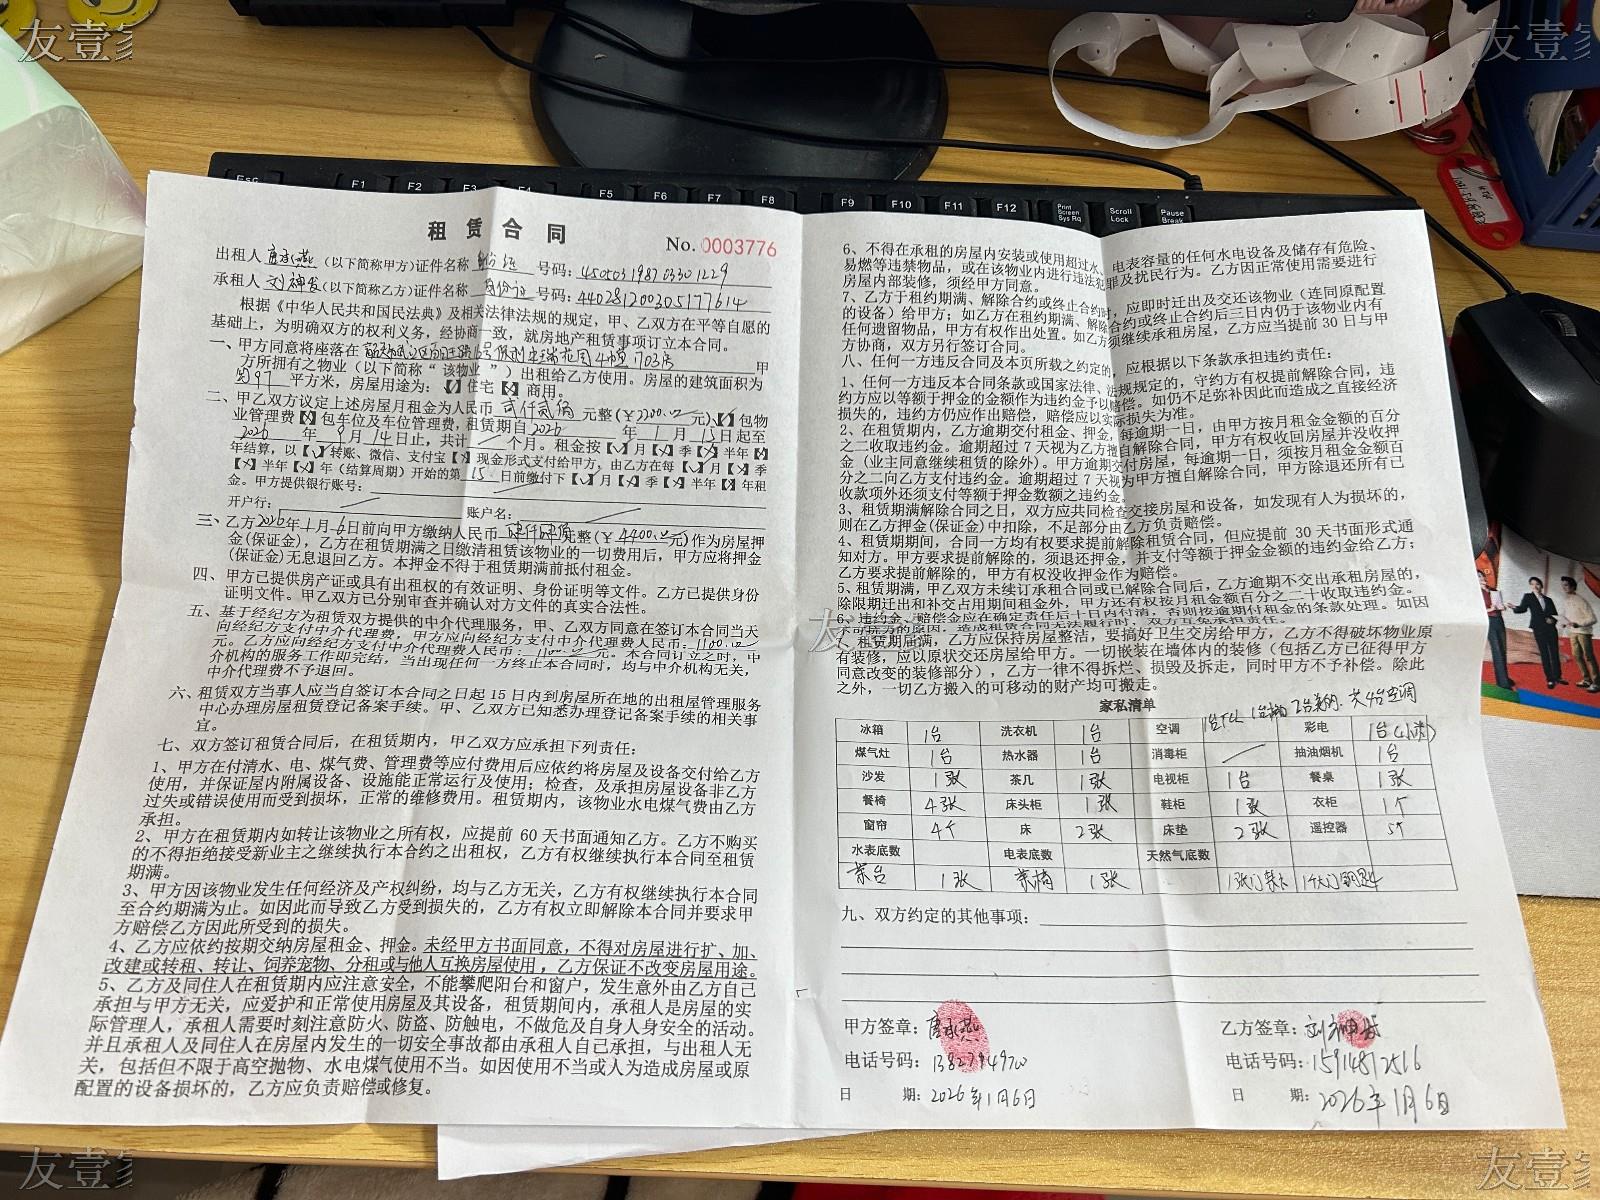 友壹家
友壹家
Esc F1 F2 F3 F4 F5 F6 F7 F8 F9 F10 F11 F12 Print Screen Sys Rq Scroll Lock Pause Break
租赁合同
No. 0003776
出租人 (以下简称甲方)证件名称 身份证 号码: 450503198703301229
承租人 (以下简称乙方)证件名称 身份证 号码: 440281200305177614
根据《中华人民共和国民法典》及相关法律法规的规定，甲、乙双方在平等自愿的
基础上，为明确双方的权利义务，经协商一致，就房地产租赁事项订立本合同。
一、甲方同意将座落在 花园4幢703房 甲
方所拥有之物业（以下简称“该物业”）出租给乙方使用。房屋的建筑面积为
97 平方米，房屋用途为：【】住宅【】商用。
二、甲乙双方议定上述房屋月租金为人民币 贰仟贰佰 元整(￥2200.00元)【】包物
业管理费【】包车位及车位管理费，租赁期自2026年1月15日起至
2026年9月14日止，共计 个月。租金按【】月【】季【】半年【】
年结算，以【】转账、微信、支付宝【】现金形式支付给甲方，由乙方在每【】月【】季
【】半年【】年（结算周期）开始的第15日前缴付下【】月【】季【】半年【】年租
金。甲方提供银行账号：
开户行： 账户名：
三、乙方 年1月6日前向甲方缴纳人民币 肆仟肆佰元整(￥4400.00元)作为房屋押
金(保证金)，乙方在租赁期满之日缴清租赁该物业的一切费用后，甲方应将押金
(保证金)无息退回乙方。本押金不得于租赁期满前抵付租金。
四、甲方已提供房产证或具有出租权的有效证明、身份证明等文件。乙方已提供身份
证明文件。甲乙双方已分别审查并确认对方文件的真实合法性。
五、基于经纪方为租赁双方提供的中介代理服务，甲、乙双方同意在签订本合同当天
向经纪方支付中介代理费，甲方应向经纪方支付中介代理费人民币：1100.00
元。乙方应向经纪方支付中介代理费人民币：1100.00元。本合同订立之时，中
介机构的服务工作即完结，当出现任何一方终止本合同时，均与中介机构无关，
中介代理费不予退回。
六、租赁双方当事人应当自签订本合同之日起15日内到房屋所在地的出租屋管理服务
中心办理房屋租赁登记备案手续。甲、乙双方已知悉办理登记备案手续的相关事
宜。
七、双方签订租赁合同后，在租赁期内，甲乙双方应承担下列责任：
1、甲方在付清水、电、煤气费、管理费等应付费用后应依约将房屋及设备交付给乙方
使用，并保证屋内附属设备、设施能正常运行及使用；检查，及承担房屋设备非乙方
过失或错误使用而受到损坏，正常的维修费用。租赁期内，该物业水电煤气费由乙方
承担。
2、甲方在租赁期内如转让该物业之所有权，应提前60天书面通知乙方。乙方不购买
的不得拒绝接受新业主之继续执行本合约之出租权，乙方有权继续执行本合同至租赁
期满。
3、甲方因该物业发生任何经济及产权纠纷，均与乙方无关，乙方有权继续执行本合同
至合约期满为止。如因此而导致乙方受到损失的，乙方有权立即解除本合同并要求甲
方赔偿乙方因此所受到的损失。
4、乙方应依约按期交纳房屋租金、押金。未经甲方书面同意，不得对房屋进行扩、加、
改建或转租、转让、饲养宠物、分租或与他人互换房屋使用，乙方保证不改变房屋用途。
5、乙方及同住人在租赁期内应注意安全，不能攀爬阳台和窗户，发生意外由乙方自己
承担与甲方无关，应爱护和正常使用房屋及其设备，租赁期间内，承租人是房屋的实
际管理人，承租人需要时刻注意防火、防盗、防触电，不做危及自身人身安全的活动。
并且承租人及同住人在房屋内发生的一切安全事故都由承租人自己承担，与出租人无
关，包括但不限于高空抛物、水电煤气使用不当。如因使用不当或人为造成房屋或原
配置的设备损坏的，乙方应负责赔偿或修复。
6、不得在承租的房屋内安装或使用超过水、电表容量的任何水电设备及储存有危险、
易燃等违禁物品，或在该物业内进行违法犯罪及扰民行为。乙方因正常使用需要进行
房屋内部装修，须经甲方同意。
7、乙方于租约期满、解除合约或终止合约时，应即时迁出及交还该物业（连同原配置
的设备）给甲方；如乙方在租约期满、解除合约或终止合约后三日内仍于该物业内有
任何遗留物品，甲方有权作出处置。如乙方须继续承租房屋，乙方应当提前30日与甲
方协商，双方另行签订合同。
八、任何一方违反合同及本页所载之约定的，应根据以下条款承担违约责任：
1、任何一方违反本合同条款或国家法律、法规规定的，守约方有权提前解除合同，违
约方应以等额于押金的金额作为违约金予以赔偿。如仍不足弥补因此而造成之直接经济
损失的，违约方仍应作出赔偿，赔偿应以实际损失为准。
2、在租赁期内，乙方逾期交付租金、押金，每逾期一日，由甲方按月租金金额的百分
之二收取违约金。逾期超过7天视为乙方擅自解除合同，甲方有权收回房屋并没收押
金（业主同意继续租赁的除外）。甲方逾期交付房屋，每逾期一日，须按月租金金额百
分之二向乙方支付违约金。逾期超过7天视为甲方擅自解除合同，甲方除退还所有已
收款项外还须支付等额于押金数额之违约金。
3、租赁期满解除合同之日，双方应共同检查交接房屋和设备，如发现有人为损坏的，
则在乙方押金(保证金)中扣除，不足部分由乙方负责赔偿。
4、租赁期期间，合同一方均有权要求提前解除租赁合同，但应提前30天书面形式通
知对方。甲方要求提前解除的，须退还押金，并支付等额于押金金额的违约金给乙方；
乙方要求提前解除的，甲方有权没收押金作为赔偿。
5、租赁期满，甲乙双方未续订承租合同或已解除合同后，乙方逾期不交出承租房屋的，
除限期迁出和补交占用期间租金外，甲方还有权按月租金额百分之二十收取违约金。
6、违约金、赔偿金应在确定责任后十日内付清，否则按逾期付租金的条款处理。如因
不可抗力的原因，造成租赁合同无法履行时，双方互免承担责任。
租赁届满，乙方应保持房屋整洁，要搞好卫生交房给甲方，乙方不得破坏物业原
有装修，应以原状交还房屋给甲方。一切嵌装在墙体内的装修（包括乙方已征得甲方
同意改变的装修部分），乙方一律不得拆烂、损毁及拆走，同时甲方不予补偿。除此
之外，一切乙方搬入的可移动的财产均可搬走。
家私清单
共4台空调
冰箱 1台 洗衣机 1台 空调 彩电 1台
煤气灶 1台 热水器 1台 消毒柜 抽油烟机 1台
沙发 1张 茶几 1张 电视柜 1台 餐桌 1张
餐椅 4张 床头柜 1张 鞋柜 1张 衣柜 1个
窗帘 4个 床 2张 床垫 2张 遥控器 5个
水表底数 电表底数 天然气底数
茶台 1张 1张 1张门禁卡
九、双方约定的其他事项：
甲方签章：
电话号码：
日 期：2026年1月6日
乙方签章：
电话号码：15914812516
日 期：2026年1月6日
友壹家
友壹家